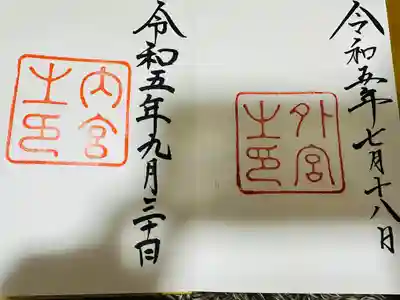 令和五年七月十八日
外宮
之印
令和五年九月三十日
内宮
之印